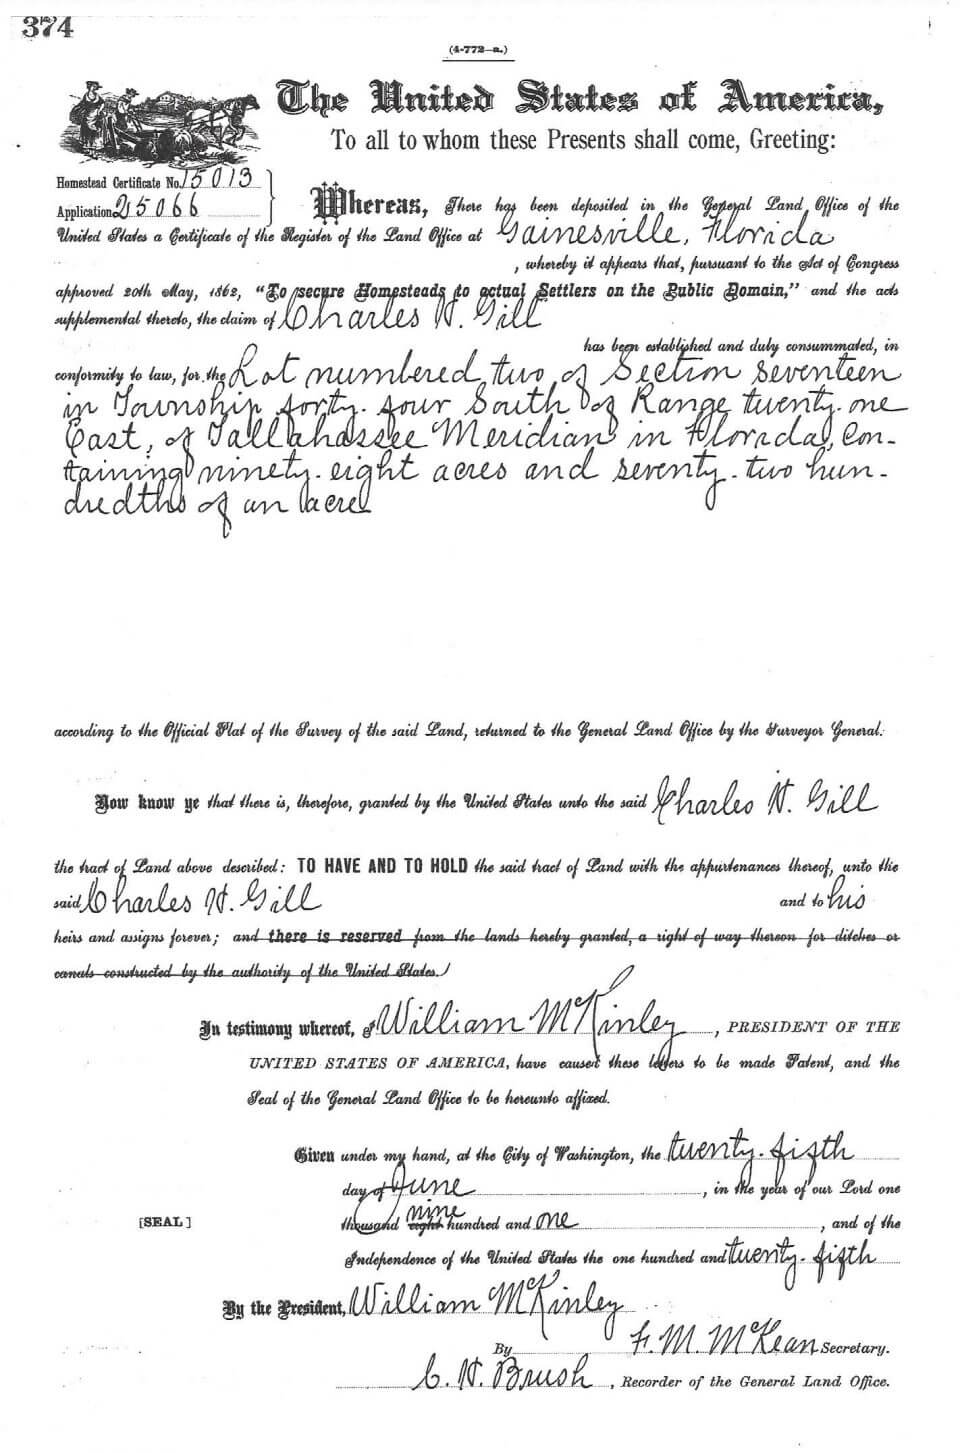 374
(4-772-a.)
The United States of America,
To all to whom these Presents shall come, Greeting:
Homestead Certificate No. 15013
Application 25066
Whereas, There has been deposited in the General Land Office of the
United States a Certificate of the Register of the Land Office at Gainesville, Florida
, whereby it appears that, pursuant to the Act of Congress
approved 20th May, 1862, "To secure Homesteads to actual Settlers on the Public Domain," and the acts
supplemental thereto, the claim of Charles H. Gill
has been established and duly consummated, in
conformity to law, for the Lot numbered two of Section seventeen
in Township forty-four South of Range twenty-one
East, of Tallahassee Meridian in Florida, con-
taining ninety-eight acres and seventy-two hun-
dredths of an acre
according to the Official Plat of the Survey of the said Land, returned to the General Land Office by the Surveyor General.
Now know ye that there is, therefore, granted by the United States unto the said Charles H. Gill
the tract of Land above described: TO HAVE AND TO HOLD the said tract of Land with the appurtenances thereof, unto the
said Charles H. Gill and to his
heirs and assigns forever; and there is reserved from the lands hereby granted, a right of way thereon for ditches or
canals constructed by the authority of the United States.
In testimony whereof, I William McKinley, PRESIDENT OF THE
UNITED STATES OF AMERICA, have caused these letters to be made Patent, and the
Seal of the General Land Office to be hereunto affixed.
Given under my hand, at the City of Washington, the twenty-fifth
day of June, in the year of our Lord one
nine
[SEAL] thousand eight hundred and one, and of the
Independence of the United States the one hundred and twenty-fifth
By the President, William McKinley
By F. M. McKean Secretary.
C. H. Brush, Recorder of the General Land Office.